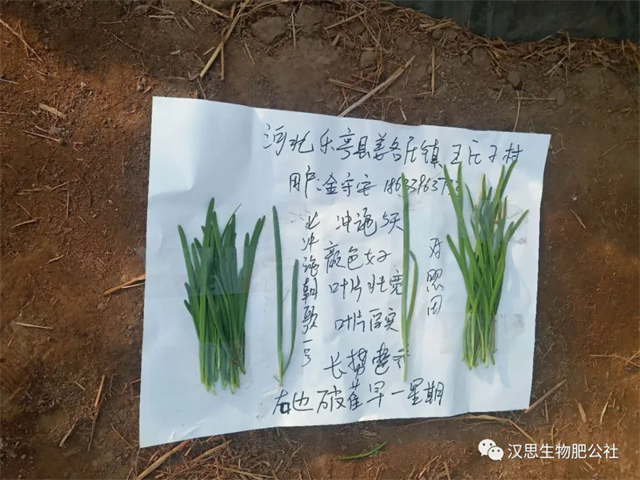 河北乐亭县姜各庄镇王庄子村
用户:金守安
冲施5天
颜色好
叶片壮宽
叶片厚实
长势整齐
冲施朝歌一号
对照田
右边破茬早一星期
汉思生物肥公社